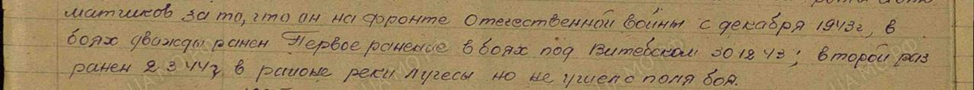 матчиков за то, что он на фронте Отечественной войны с декабря 1943г, в
боях дважды ранен Первое ранение в боях под Витебском 30 12 43; второй раз
ранен 2 3 44г в районе реки Лучесы но не ушел с поля боя.